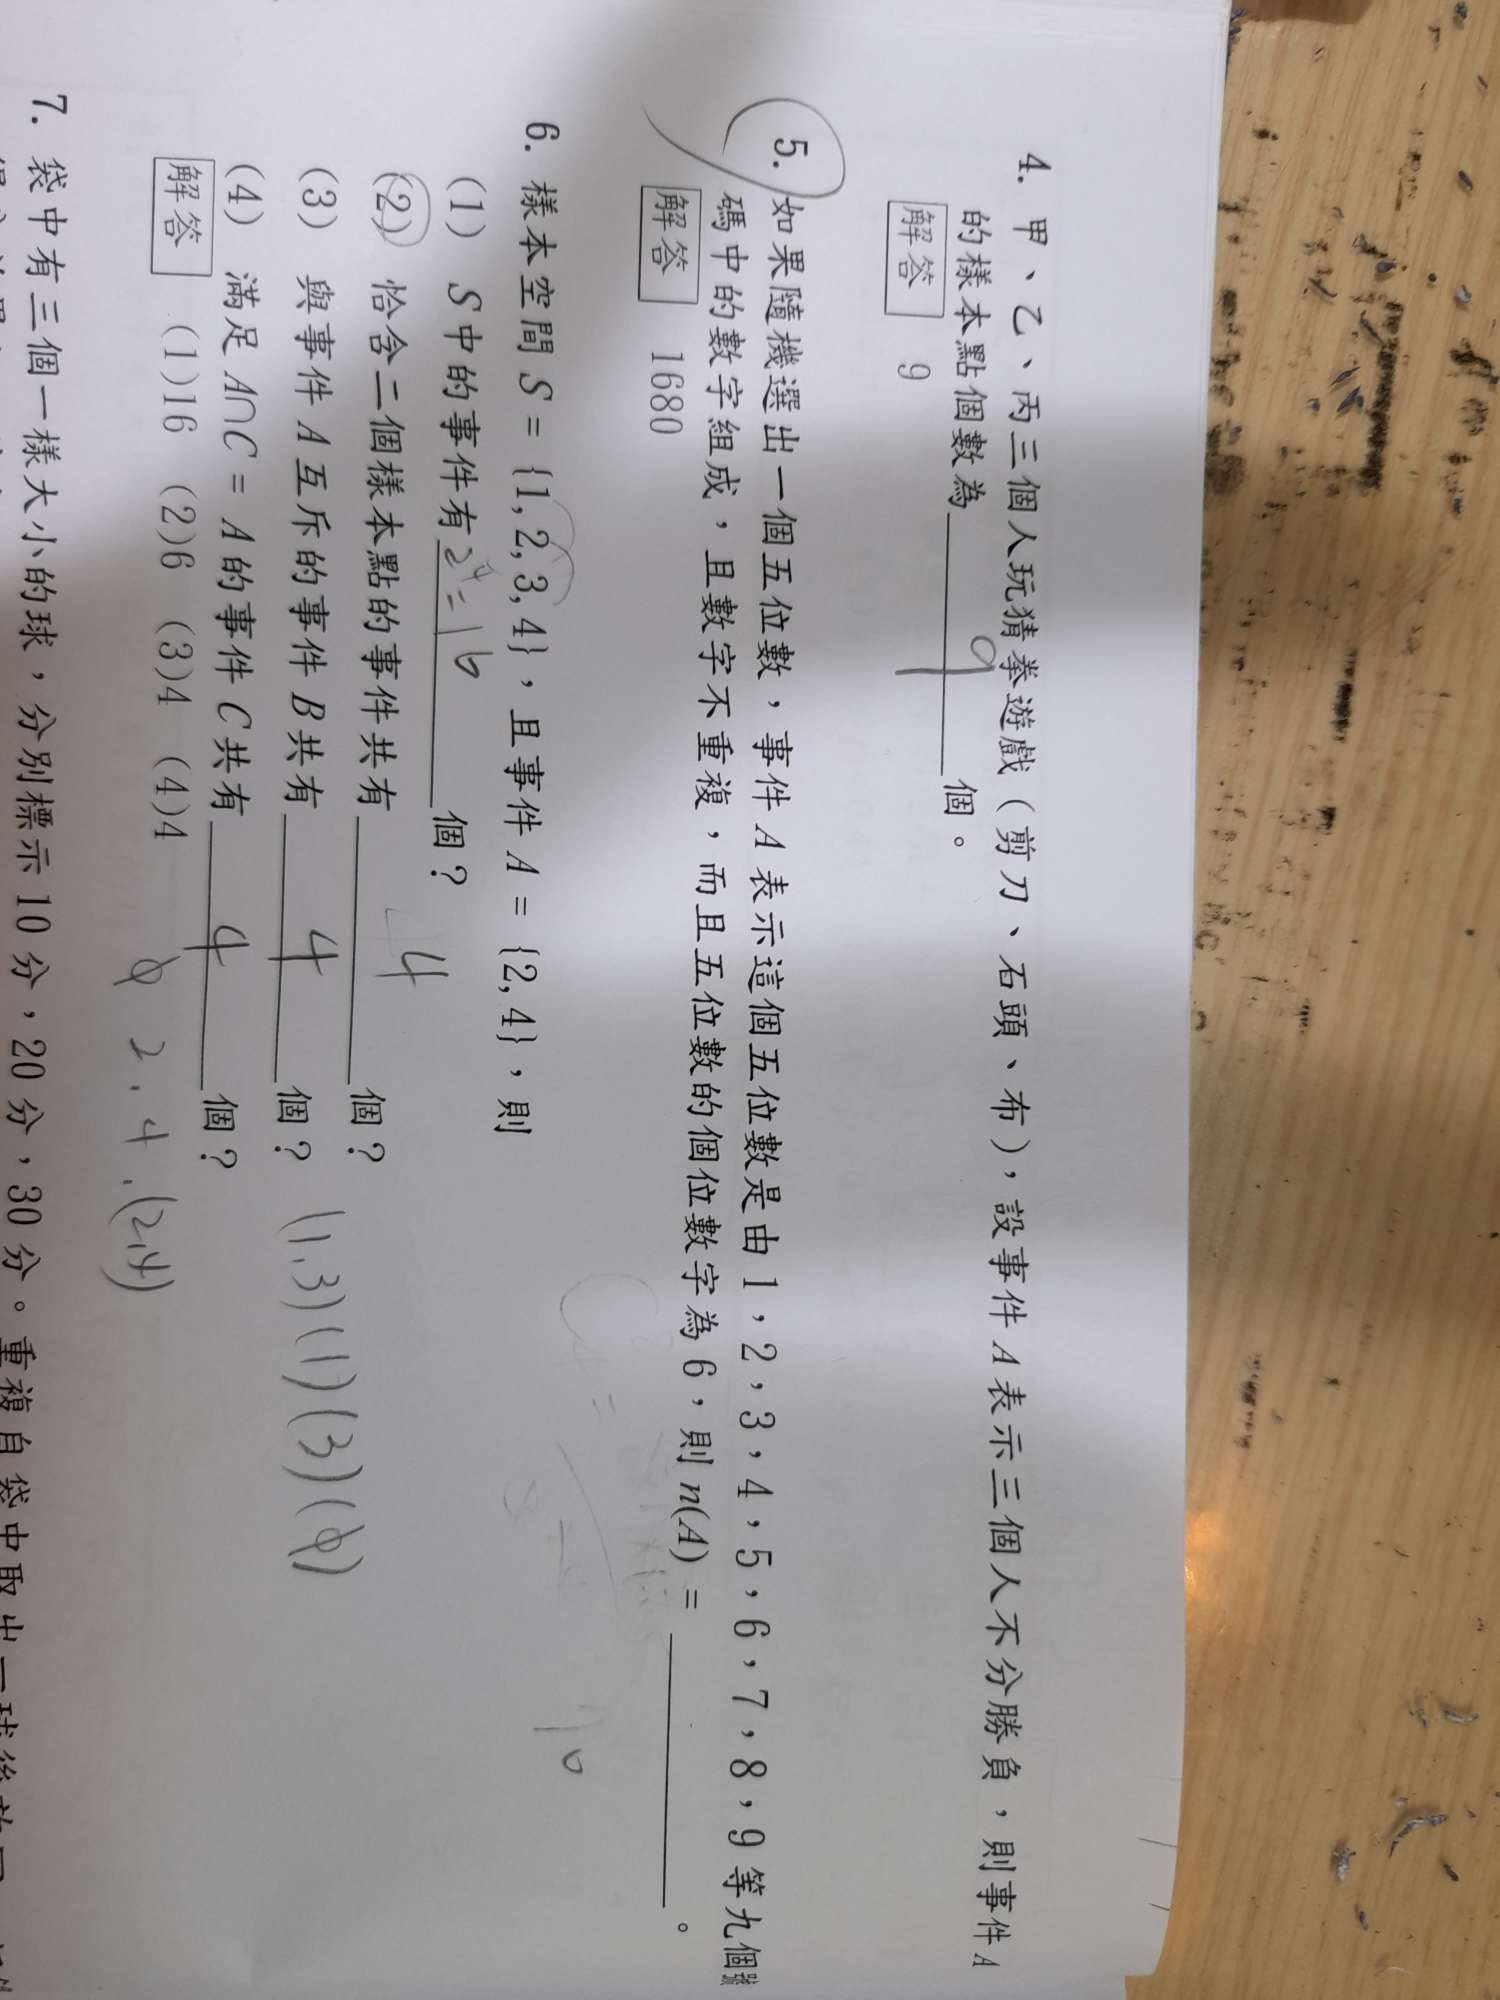 4. 甲、乙、丙三個人玩猜拳遊戲（剪刀、石頭、布），設事件A表示三個人不分勝負，則事件A
的樣本點個數為 9 個。
解答 9
5. 如果隨機選出一個五位數，事件A表示這個五位數是由1，2，3，4，5，6，7，8，9等九個號
碼中的數字組成，且數字不重複，而且五位數的個位數字為6，則n(A) = ______。
解答 1680
6. 樣本空間S = {1, 2, 3, 4}，且事件A = {2, 4}，則
(1) S中的事件有 2⁴=16 個？
(2) 恰含二個樣本點的事件共有 4 個？
(3) 與事件A互斥的事件B共有 4 個？ (1,3)(1)(3)(φ)
(4) 滿足A∩C = A的事件C共有 4 個？
解答 (1)16 (2)6 (3)4 (4)4
φ 2.4.(2,4)
7. 袋中有三個一樣大小的球，分別標示10分，20分，30分。重複自袋中取出一球後放回